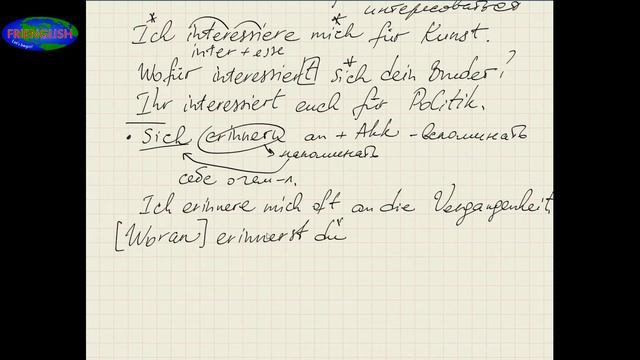 FRIENGLISH
Let's begin!
интересоваться
* *
Ich interessiere mich für Kunst.
inter + esse
*
Wofür interessier[t] sich dein Bruder?
Ihr interessiert euch für Politik.
• Sich erinnern an + Akk - вспоминать
напоминать
себе о чем-л.
Ich erinnere mich oft an die Vergangenheit
[Woran] erinnerst du